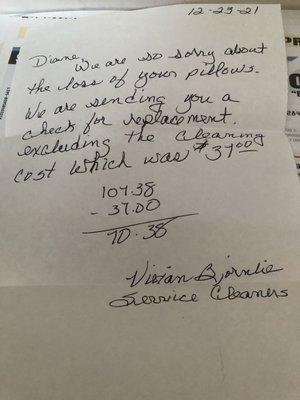 12-23-21
Diane,
We are so sorry about
the loss of your pillows.
We are sending you a
check for replacement.
excluding the cleaning
cost which was $37.00
107.38
- 37.00
70.38
Vivian Bjornlie
Service Cleaners